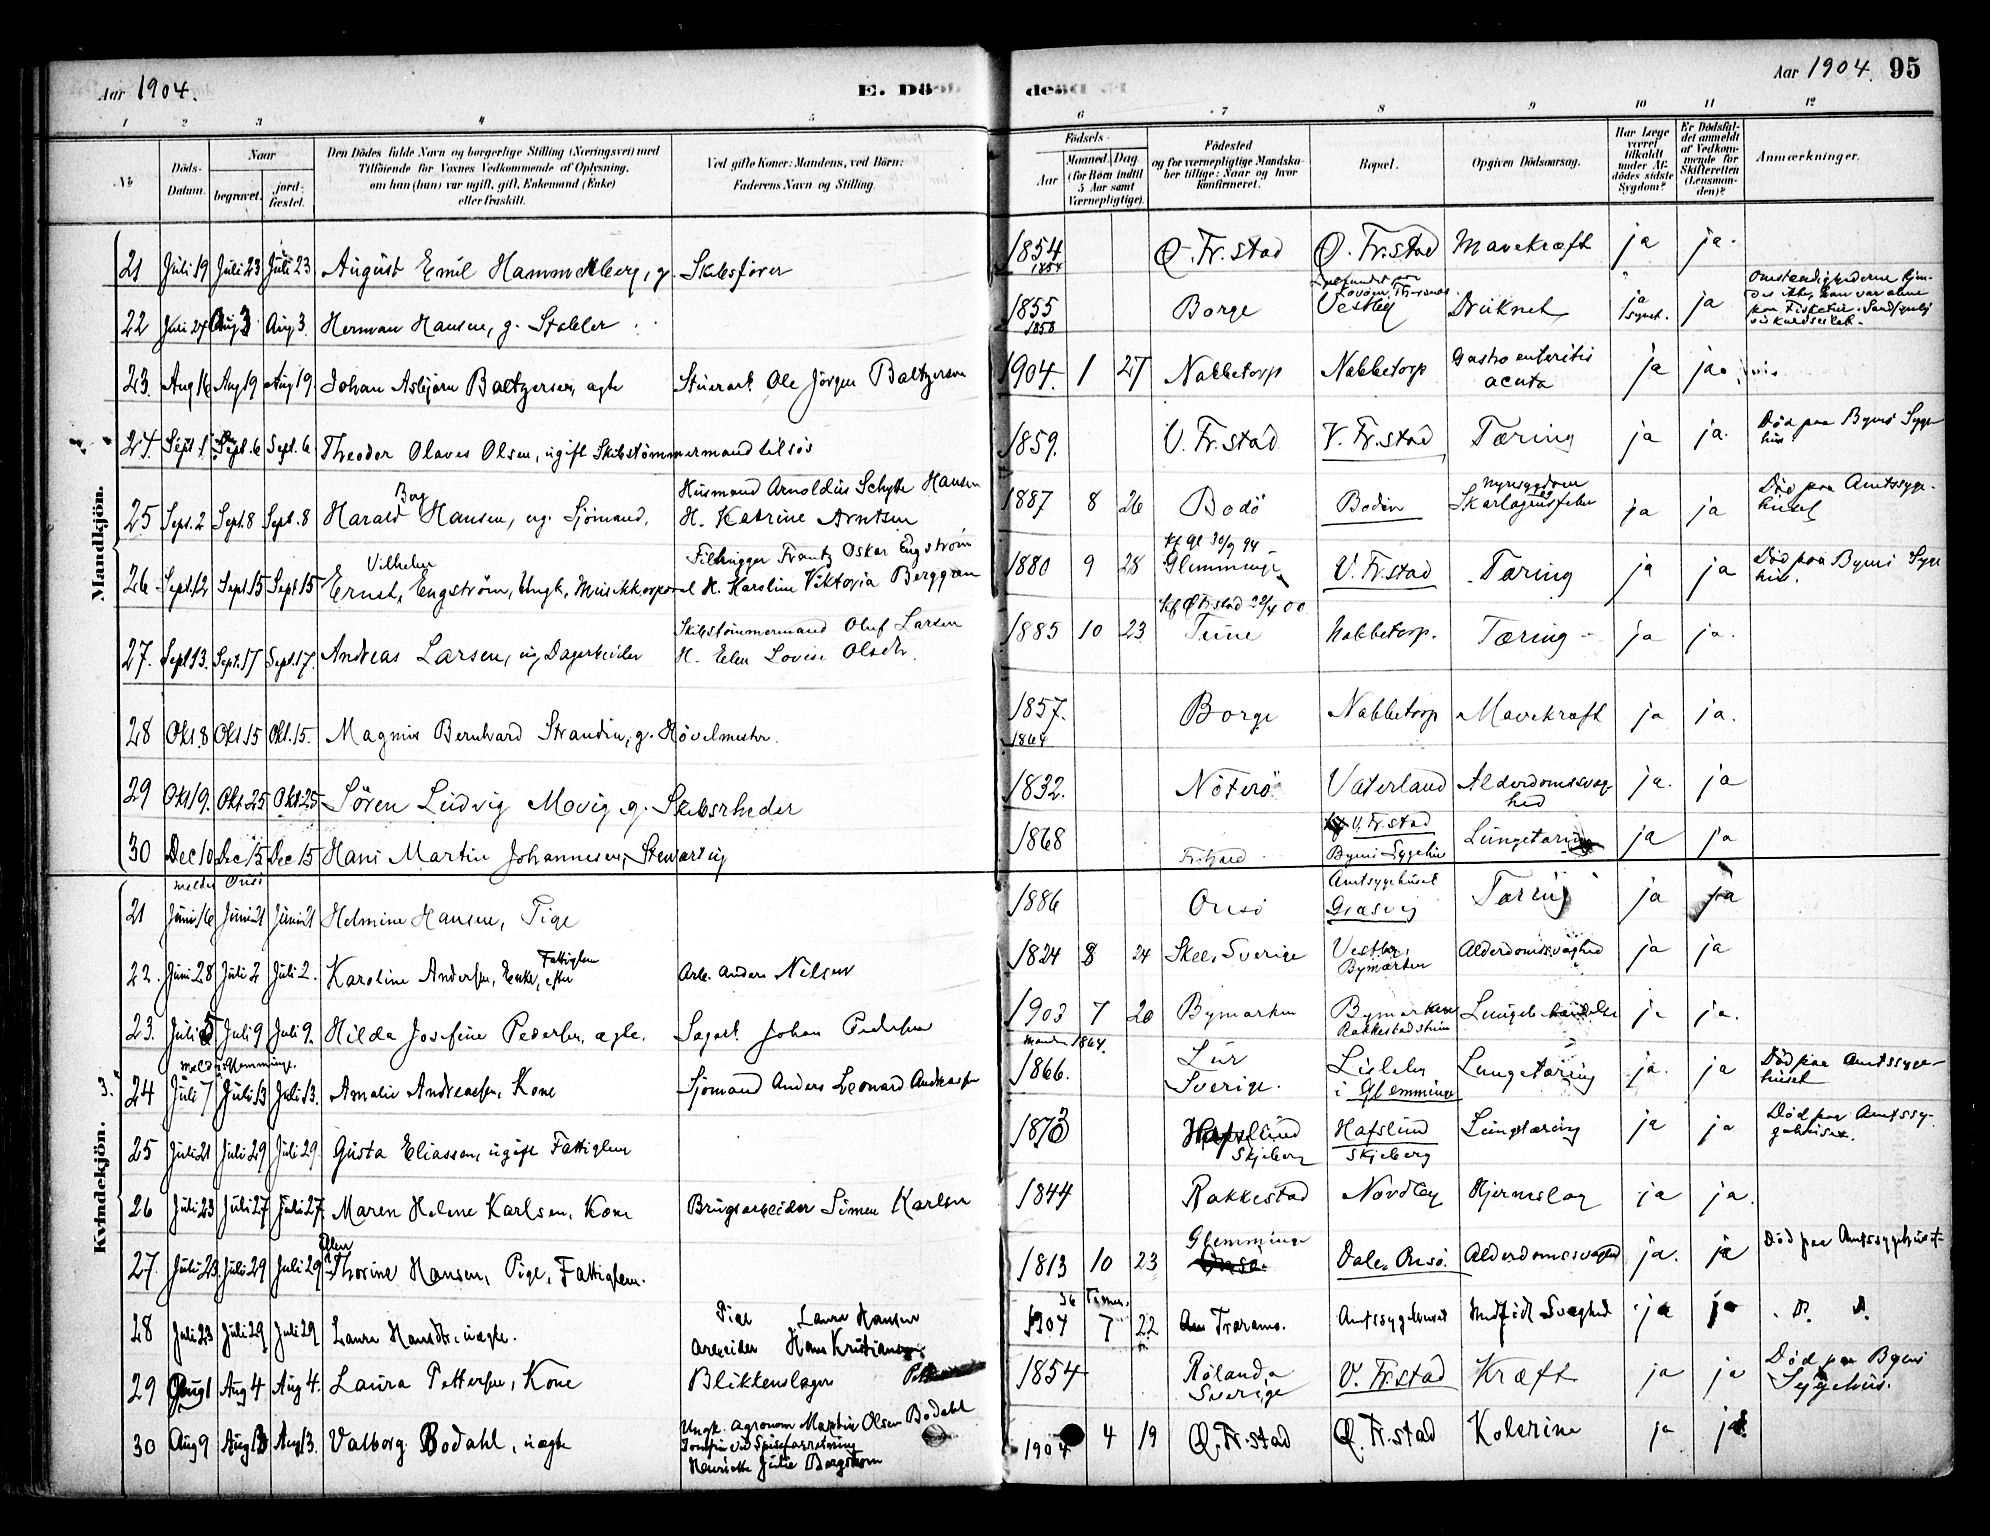 Aar 1904. E. Døde Aar 1904. 95
1 2 3 4 5 6 7 8 9 10 11 12
No. Døds-Datum. Naar begravet. jordfæstet. Den Dødes fulde Navn og borgerlige Stilling (Næringsvei) med Tilføiende for Voxnes Vedkommende af Oplysning, om han (hun) var ugift, gift, Enkemand (Enke) eller fraskilt. Ved gifte Koner: Mandens, ved Børn: Faderens Navn og Stilling. Fødsels- Aar Maaned. Dag. (for Børn indtil 5 Aar samt Værnepligtige). Fødested og for værnepligtige Mandskaber tillige: Naar og hvor konfirmeret. Bopæl. Opgiven Dødsaarsag. Har Læge været tilkaldt under Afdødes sidste Sygdom? Er Dødsfaldet anmeldt af Vedkommende for Skifteretten (Lensmanden)? Anmærkninger.
Mandkjøn.
21 Juli 19 Juli 23 Juli 23 August Emil Hammelberg, g. Skibsfører 1854 1854 Ø. Fr.stad Ø. Fr.stad Mavekræft ja ja.
22 Juli 27 Aug 3 Aug. 3. Herman Hansen, g. Stabler 1855 1858 Borge Vestby Druknet ja synet. ja
23. Aug 16 Aug 19 Aug 19. Johan Asbjørn Baltzersen, ægte Stuearb. Ole Jörgen Baltzersen 1904. 1 27 Nabbetorp Nabbetorp Gastro enteritis acuta ja ja.
24. Sept 1 Sept. 6 Sept. 6 Theodor Olaves Olsen, ugift Skibstømmermand tilsøs 1859. V. Fr.stad V. Fr.stad Tæring ja ja. Død paa Byens Sygehus
25 Sept. 2 Sept. 8 Sept. 8 Harald Berg Hansen, ug. Sjömand, Husmand Arnoldus Schytte Hansen H. Katrine Arntsen 1887 8 26 Bodö Bodin Nyresygdom Skarlagensfeber ja ja Död paa Amtssygehuset
26 Sept. 12 Sept 15 Sept 15 Ernst Vilhelm Engström, Ungk. Musikkorporal Filhugger Frantz Oskar Engström H. Karoline Viktoria Berggren 1880 9 28 kf Gl 30/9 94 Glemminge V. Fr.stad Tæring ja ja Död paa Byens Sygehus.
27. Sept 13. Sept. 17 Sept. 17. Andreas Larsen, ug. Dagarbeider Skibstømmermand Oluf Larsen H. Elen Lovise Olsdtr. 1885 10 23 kf. Ø Fr.stad 22/4 00 Tune Nabbetorp. Tæring ja ja.
28 Okt. 8 Okt. 15 Okt. 15. Magnus Bernhard Strandin, g. Hövelmester. 1857. 1864 Borge Nabbetorp Mavekræft ja ja.
29 Okt 19. Okt. 25 Okt 25 Sören Ludvig Movig g. Skibsrheder 1832. Nöterö Vaterland Alderdomssvaghed ja. ja
30 Dec 10 Dec 15 Dec 15 Hans Martin Johannesen, Stewart ug 1868 Fr.stad V. Fr.stad Byens Sygehus Lungetæring ja ja
Kvindekjøn.
meldt Onsö
21 Juni 16 Juni 21 Juni 21 Helmine Hansen, Pige 1886 Onsö Amtsygehuset Græsvig Tæring ja ja
22. Juni 28 Juli 2 Juli 2. Karoline Andersen, Enke, Fattiglem efter Arb. Anders Nilsen 1824 8 24 Skee, Sverige Vestby, Bymarken Alderdomssvaghed ja ja
23. Juli 5 Juli 9 Juli 9. Hilda Josefine Pedersen, ægte. Sagarb. Johan Pedersen 1903 7 20 Bymarken Bymarken Rakkestadstuen ja ja.
meldt Glemminge.
24 Juli 7 Juli 13 Juli 13. Amalie Andreassen, Kone Sjömand Anders Leonard Andreassen Manden 1864. 1866. Lur Sverige. Lisleby i Glemminge Lungetæring ja. ja Död paa Amtssygehuset
25 Juli 21 Juli 29 Juli 29 Gusta Eliassen, ugift Fattiglem 1873 Hafslund Skjeberg Hafslund Skjeberg Lungtæring ja ja Död paa Amtssygehuset.
26 Juli 23 Juli 27 Juli 27 Maren Helene Karlsen, Kone Brugsarbeider Simen Karlsen 1844 Rakkestad Nordby Hjerneslag ja ja.
27. Juli 23. Juli 29 Juli 29 Ellen Thorine Hansen, Pige, Fattiglem. 1813 10 23 Glemminge Onsö. Dale, Onsö. Alderdomssvaghed ja. ja Död paa Amtssygehuset
28 Juli 23 Juli 29 Juli 29 Laura Hansdtr. uægte. Pige Laura Hansen Arbeider Hans Kristiansen 36 Timer. 1904 7 22 Amtssygehuset Medfödt Svaghed ja ja D. D.
29 Aug 1 Aug 4 Aug 4. Laura Pettersen, Kone Blikkenslager 1854 Rölanda Sverige V. Fr.stad Kræft ja ja Död paa Byens Sygehus.
30 Aug 9 Aug 13 Aug 13. Valborg Bodahl, uægte Ungk. agronom Martin Olsen Bodahl Jomfru ved Spiseforretning Henriette Julie Bergstrøm 1904 4 19 Ø. Fr.stad Ø. Fr.stad Kolerine ja ja.